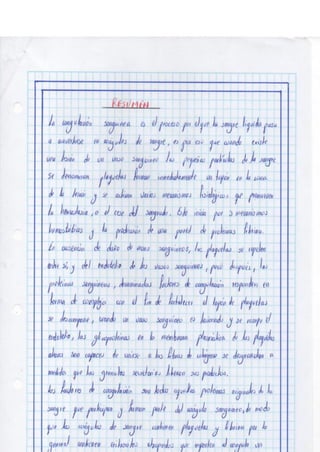 RESUMEN
La coagulación sanguínea es el proceso por el que la sangre líquida pasa
a convertirse en coágulos de sangre, es por eso que cuando existe
una lesión de un vaso sanguíneo las pequeñas partículas de la sangre
se denominan plaquetas forman inmediatamente un tapón en la zona
de la lesión y se activan varios mecanismos fisiológicos que promueven
la hemostasia, o el cese del sangrado. Este inicia por 3 mecanismos
hemostáticos y la producción de una pared de proteínas fibrina.
La ausencia de daño de vasos sanguíneos, las plaquetas se repelen
entre sí y del endotelio de los vasos sanguíneos, pero después, las
proteínas sanguíneas, denominadas factores de coagulación responden en
forma de complejo con el fin de fortalecer el tapón de plaquetas
se descompone, cuando un vaso sanguíneo es lesionado y se rompe el
endotelio, las glicoproteínas en la membrana plasmática de las plaquetas
ahora son capaces de unirse a las fibras de colágeno se desgranulan a
medida que los gránulos secretorios liberan sus productos.
Los factores de coagulación son todas aquellas proteínas originales de la
sangre que participan y forman parte del coágulo sanguíneo, de modo
que los coágulos de sangre contienen plaquetas y fibrina por lo
general contienen eritrocitos atrapados que aportan al coágulo un